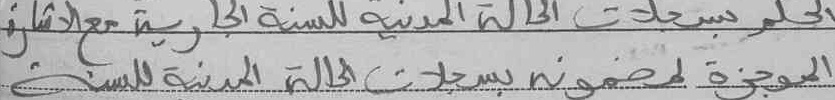 الحكم بسجلات الحالة المدنية للسنة الجارية مع الاشارة
الموجزة لمضمونه بسجلات الحالة المدنية للسنة